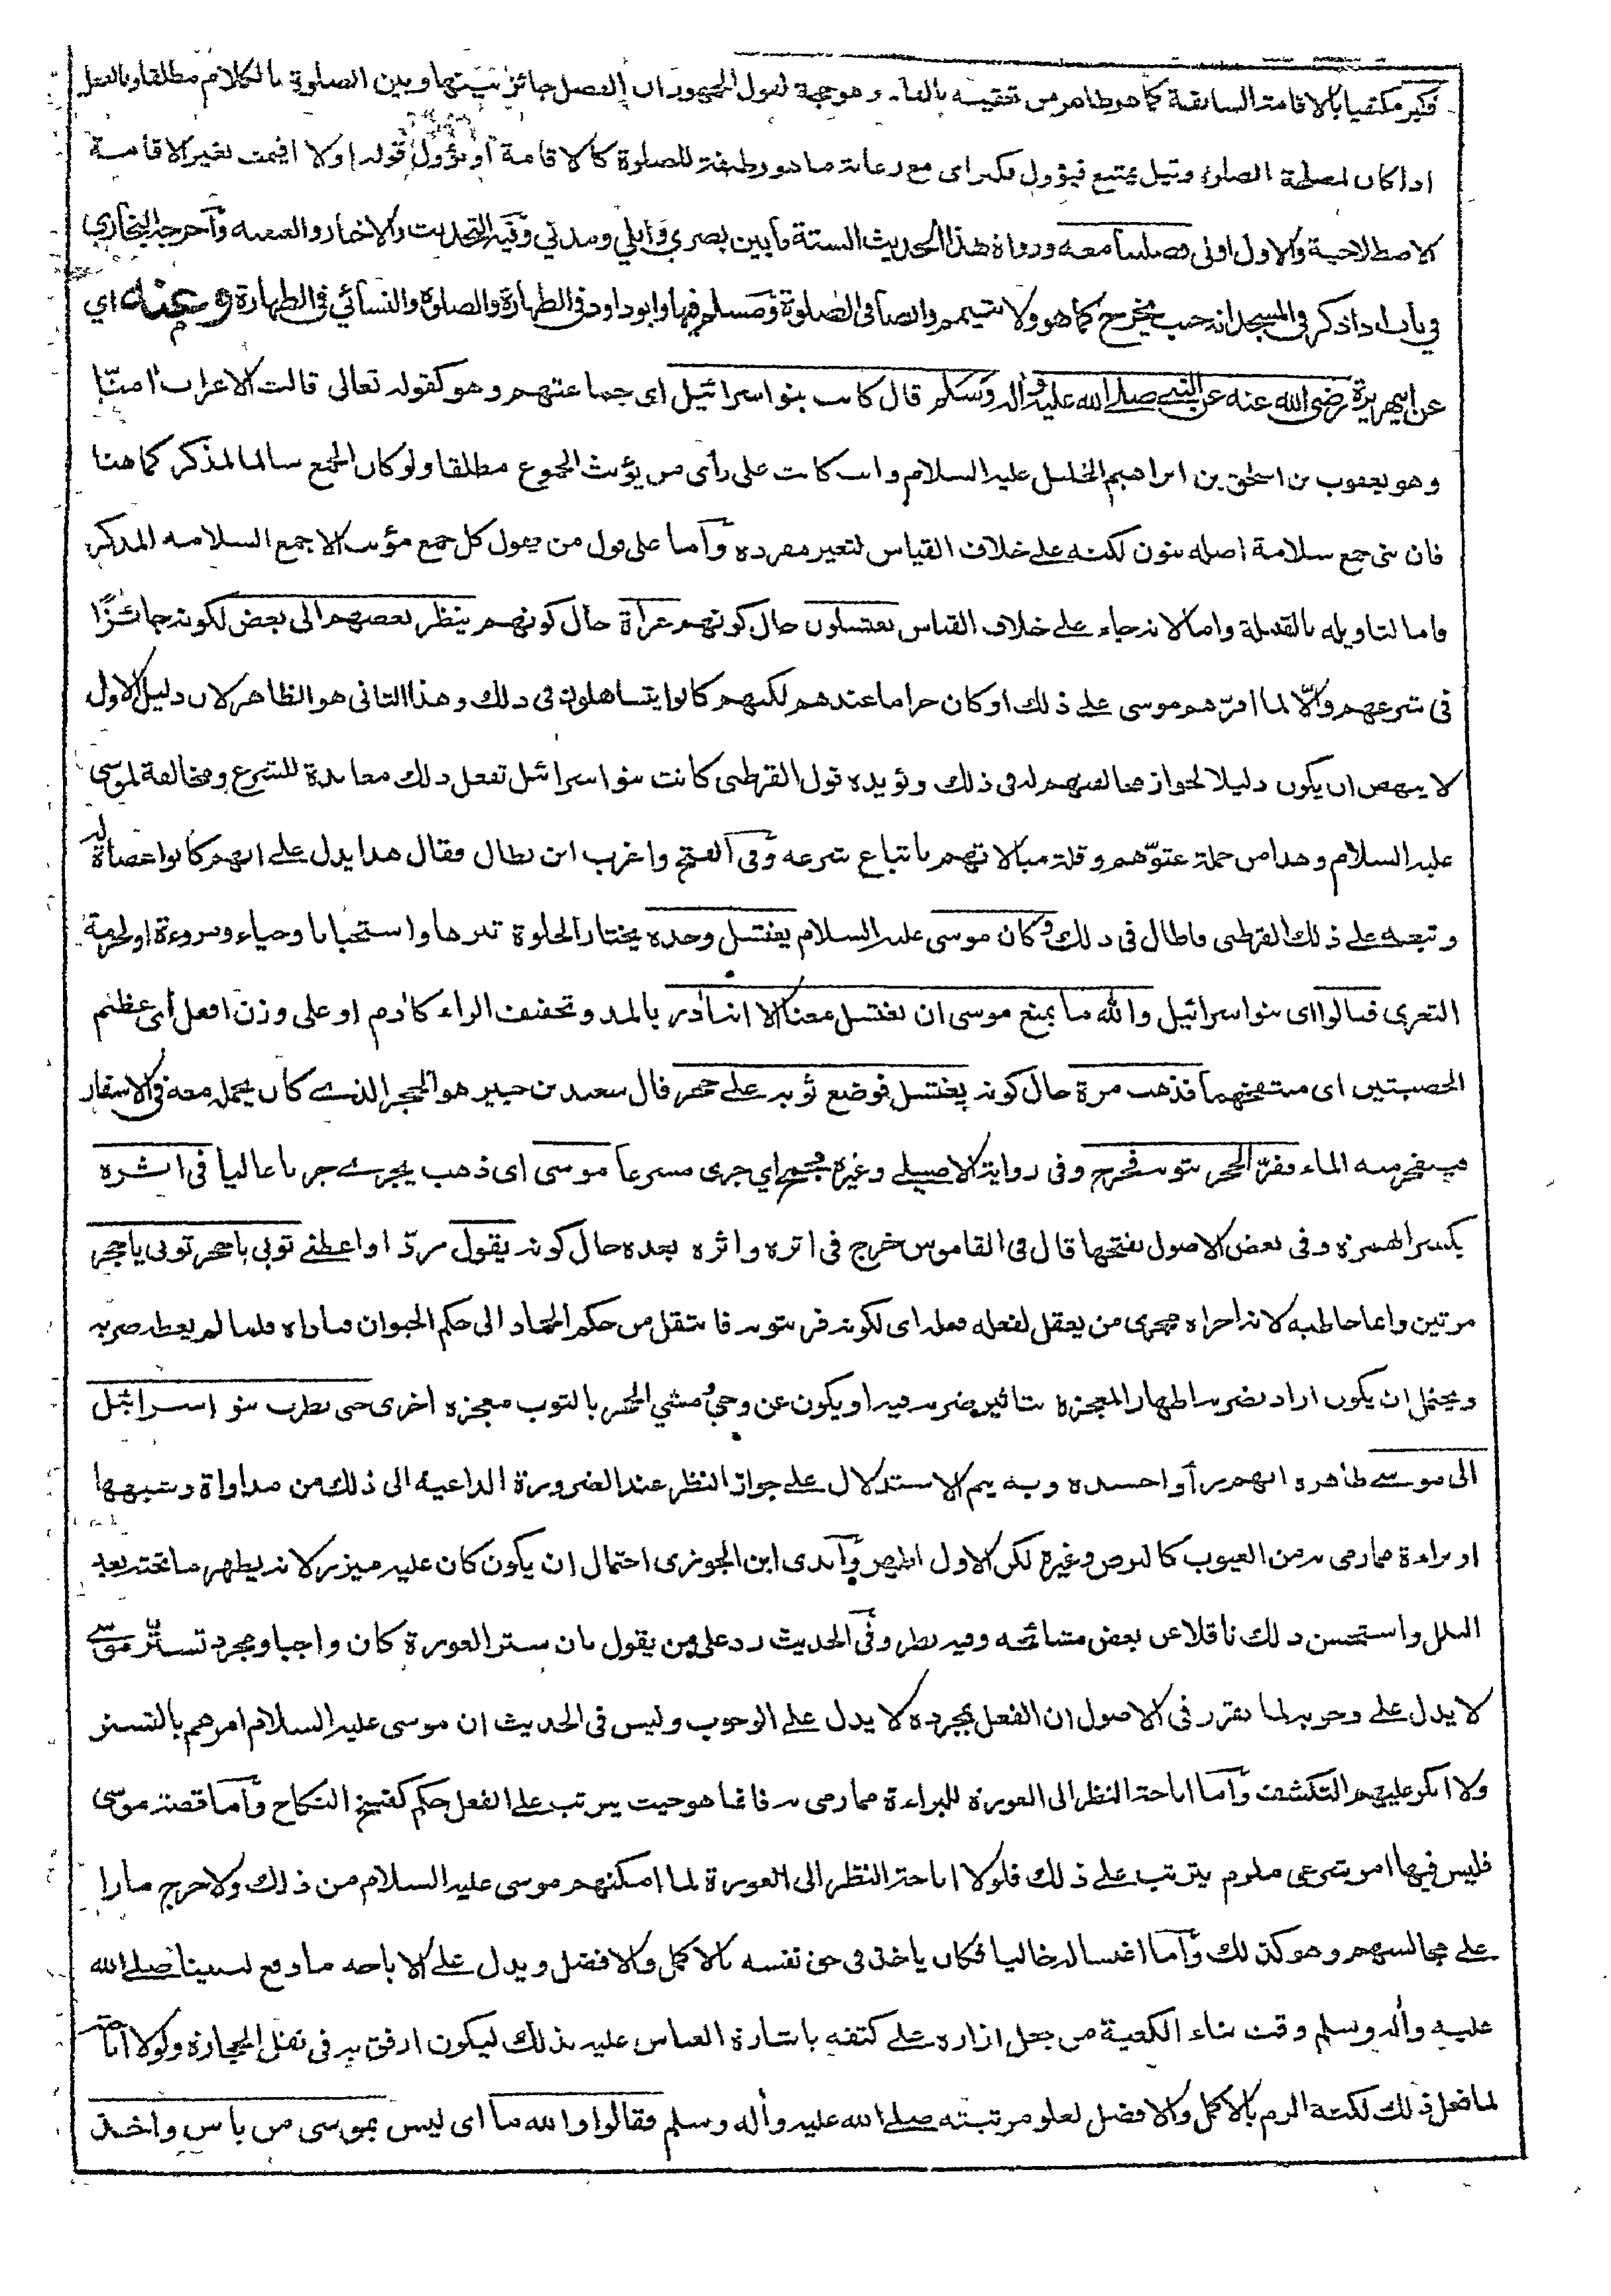 فكبر مكتفيا بالاقامة السابقة كما هو ظاهر من تعقيبه بالفاء وهو حجة لقول الجمهور ان الفصل جائز بينها وبين الصلوة بالكلام مطلقا وبالفعل
اذا كان لمصلحة الصلوة وقيل يمتنع فيؤول فكبر اى مع رعاية ما هو وظيفة للصلوة كالاقامة او يؤول قوله اولا اقيمت بغير الاقامة
الاصطلاحية والاول اولى فصلينا معه ورواة هذا الحديث الستة ما بين بصري وايلي ومدني وفيه التحديث والاخبار والعنعنة وأخرجه البخاري
في باب اذا ذكر في المسجد انه جنب يخرج كما هو ولا يتيمم وايضا في الصلوة ومسلم فيها وابو داود في الطهارة والصلوة والنسائي في الطهارة وعنه اي
عن ابي هريرة رضى الله عنه عن النبي صلى الله عليه واله وسلم قال كانت بنو اسرائيل اى جماعتهم وهو كقوله تعالى قالت الاعراب امنّا
وهو يعقوب بن اسحق بن ابراهيم الخليل عليه السلام وانث كانت على رأى من يؤنث الجموع مطلقا ولو كان الجمع سالما لمذكر كما هنا
فان بنى جمع سلامة اصله بنون لكنه على خلاف القياس لتغير مفرده وأما على قول من يقول كل جمع مؤنث الا جمع السلامة المذكر
فاما لتاويله بالقبيلة واما لانه جاء على خلاف القياس يغتسلون حال كونهم عراة حال كونهم ينظر بعضهم الى بعض لكونه جائزًا
فى شرعهم والّا لما اقرّهم موسى على ذلك او كان حراما عندهم لكنهم كانوا يتساهلون فى ذلك وهذا الثانى هو الظاهر لان دليل الاول
لا ينهض ان يكون دليلا لجواز مخالفتهم له فى ذلك ويؤيده قول القرطبى كانت بنو اسرائيل تفعل ذلك معاندة للشرع ومخالفة لموسى
عليه السلام وهذا من جملة عتوّهم وقلة مبالاتهم باتباع شرعه وفى الفتح واغرب ابن بطال فقال هذا يدل على انهم كانوا عصاة له
وتبعه على ذلك القرطبى فاطال فى ذلك وكان موسى عليه السلام يغتسل وحده يختار الخلوة تنزها واستحبابا وحياء ومروءة او لحرمة
التعرى فقالوا اى بنو اسرائيل والله ما يمنع موسى ان يغتسل معنا الا انه آدر بالمد وتخفيف الراء كآدم او على وزن افعل اى عظيم
الخصيتين اى منتفخهما فذهب مرة حال كونه يغتسل فوضع ثوبه على حجر قال سعيد بن جبير هو الحجر الذى كان يحمله معه فى الاسفار
فيتفجر منه الماء ففرّ الحجر بثوبه فخرج وفى رواية الاصيلى وغيره فجمح اي جرى مسرعا موسى اى ذهب يجرى جريا عاليا فى اثره
بكسر الهمزة وفى بعض الاصول بفتحها قال فى القاموس خرج فى اثره واثره بعده حال كونه يقول ردّ او اعطنى ثوبى يا حجر ثوبى يا حجر
مرتين وانما خاطبه لانه اجراه مجرى من يعقل لفعله فعله اى لكونه فر بثوبه فانتقل من حكم الجماد الى حكم الحيوان فناداه فلما لم يعطه ضربه
ويحتمل ان يكون اراد بضربه اظهار المعجزة بتاثير ضربه فيه او يكون عن وحي ومشي الحجر بالثوب معجزه اخرى حتى نظرت بنو اسرائيل
الى موسى ظاهره انهم رأوا جسده وبه يتم الاستدلال على جواز النظر عند الضرورة الداعية الى ذلك من مداواة وشبهها
او براءة مما رمى به من العيوب كالبرص وغيره لكن الاول اظهر وأبدى ابن الجوزى احتمال ان يكون كان عليه ميزر لانه يظهر ما تحته بعد
البلل واستحسن ذلك ناقلا عن بعض مشائخه وفيه نظر وفى الحديث رد على من يقول بان ستر العورة كان واجبا ومجرد تستّر موسى
لا يدل على وجوبه لما تقرر فى الاصول ان الفعل بمجرده لا يدل على الوجوب وليس فى الحديث ان موسى عليه السلام امرهم بالتستر
ولا انكر عليهم التكشف وأما اباحة النظر الى العورة للبراءة مما رمى به فانما هو حيث يترتب على الفعل حكم كفسخ النكاح وأما قصة موسى
فليس فيها امر شرعى ملزوم يترتب على ذلك فلولا اباحة النظر الى العورة لما امكنهم موسى عليه السلام من ذلك ولا خرج مارا
على مجالسهم وهو كذلك وأما اغتساله خاليا فكان ياخذ فى حق نفسه بالاكمل والافضل ويدل على الاباحة ما وقع لنبينا صلى الله
عليه واله وسلم وقت بناء الكعبة من جعل ازاره على كتفه باشارة العباس عليه بذلك ليكون ارفق به فى نقل الحجارة ولولا اباحته
لما فعل ذلك لكنه الزم بالاكمل والافضل لعلو مرتبته صلى الله عليه واله وسلم فقالوا والله ما اى ليس بموسى من باس واخذ